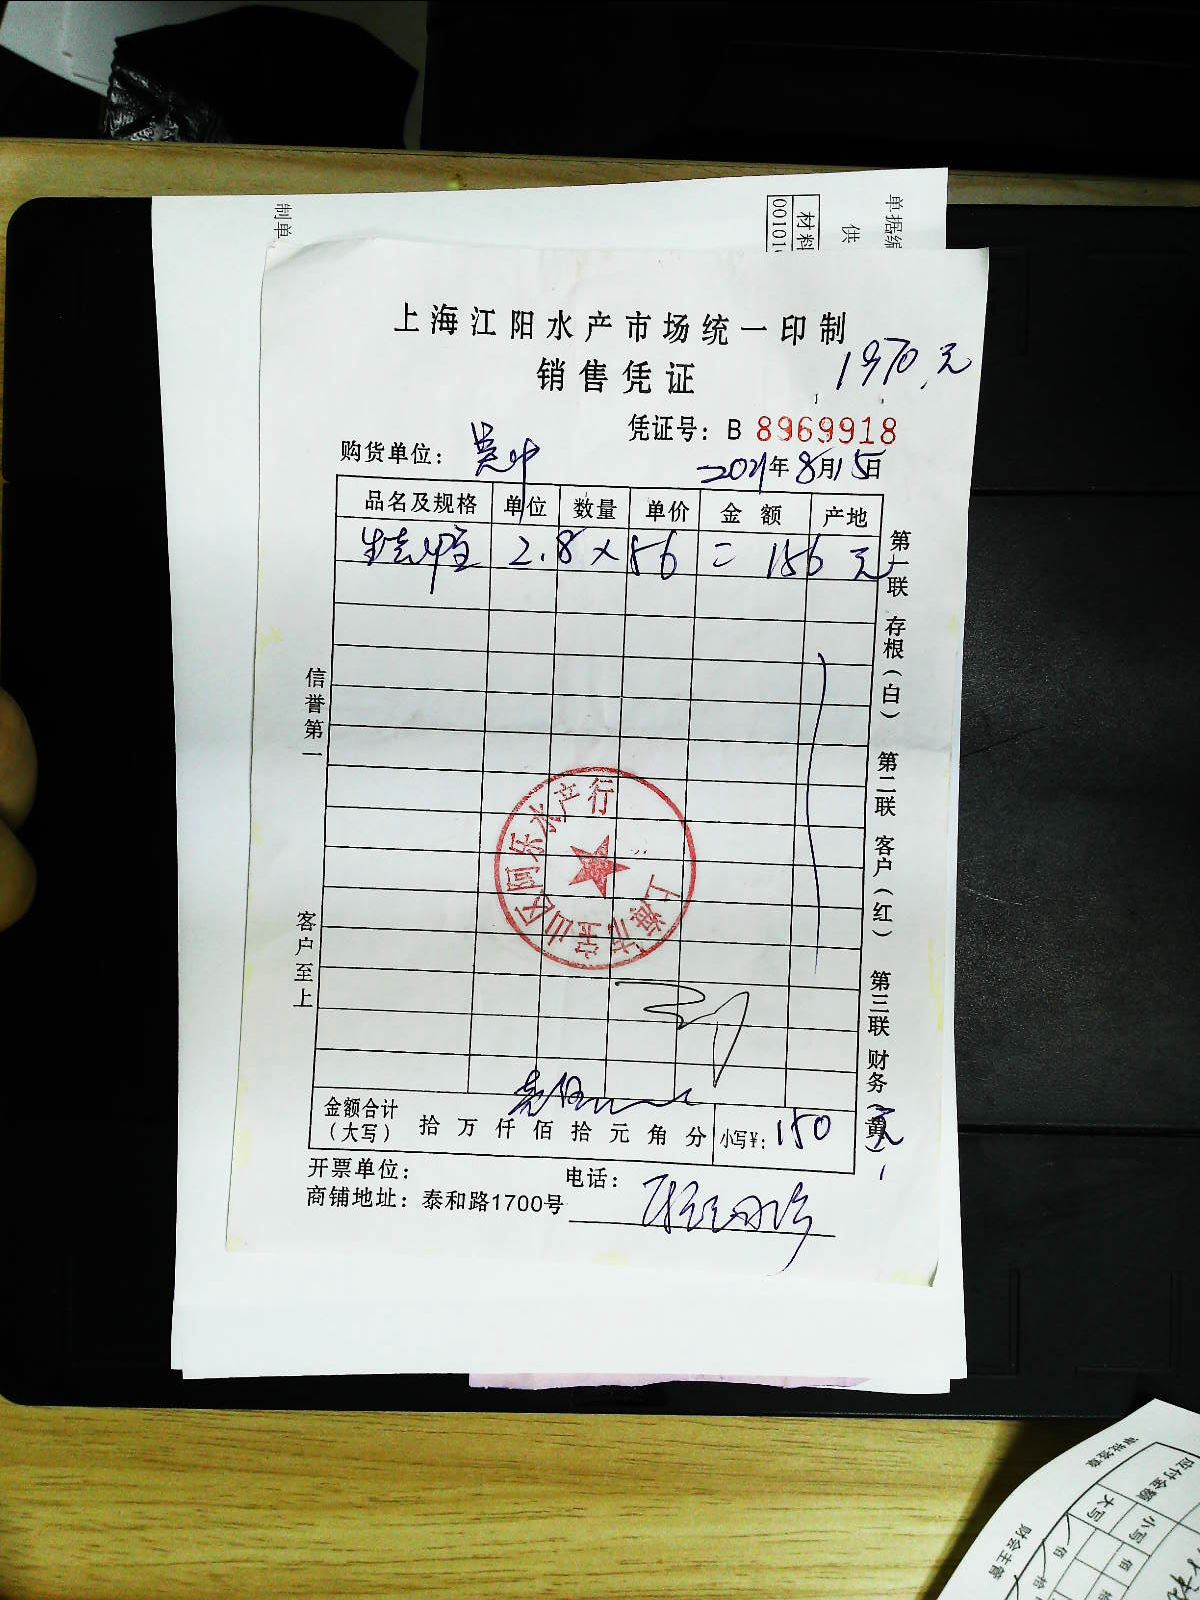 制单
单据编
供
材料
00101
上海江阳水产市场统一印制
销售凭证
1970元
凭证号：B 8969918
购货单位：
2021年8月15日
品名及规格 单位 数量 单价 金额 产地
2.8×56=156元
信誉第一
客户至上
第一联 存根（白） 第二联 客户（红） 第三联 财务（黄）
上海市宝山区阿乐水产行
金额合计
（大写） 拾 万 仟 佰 拾 元 角 分 小写¥：150元
开票单位： 电话：
商铺地址：泰和路1700号
审批签章
应付金额
大写 小写
佰 佰
拾
财会主管